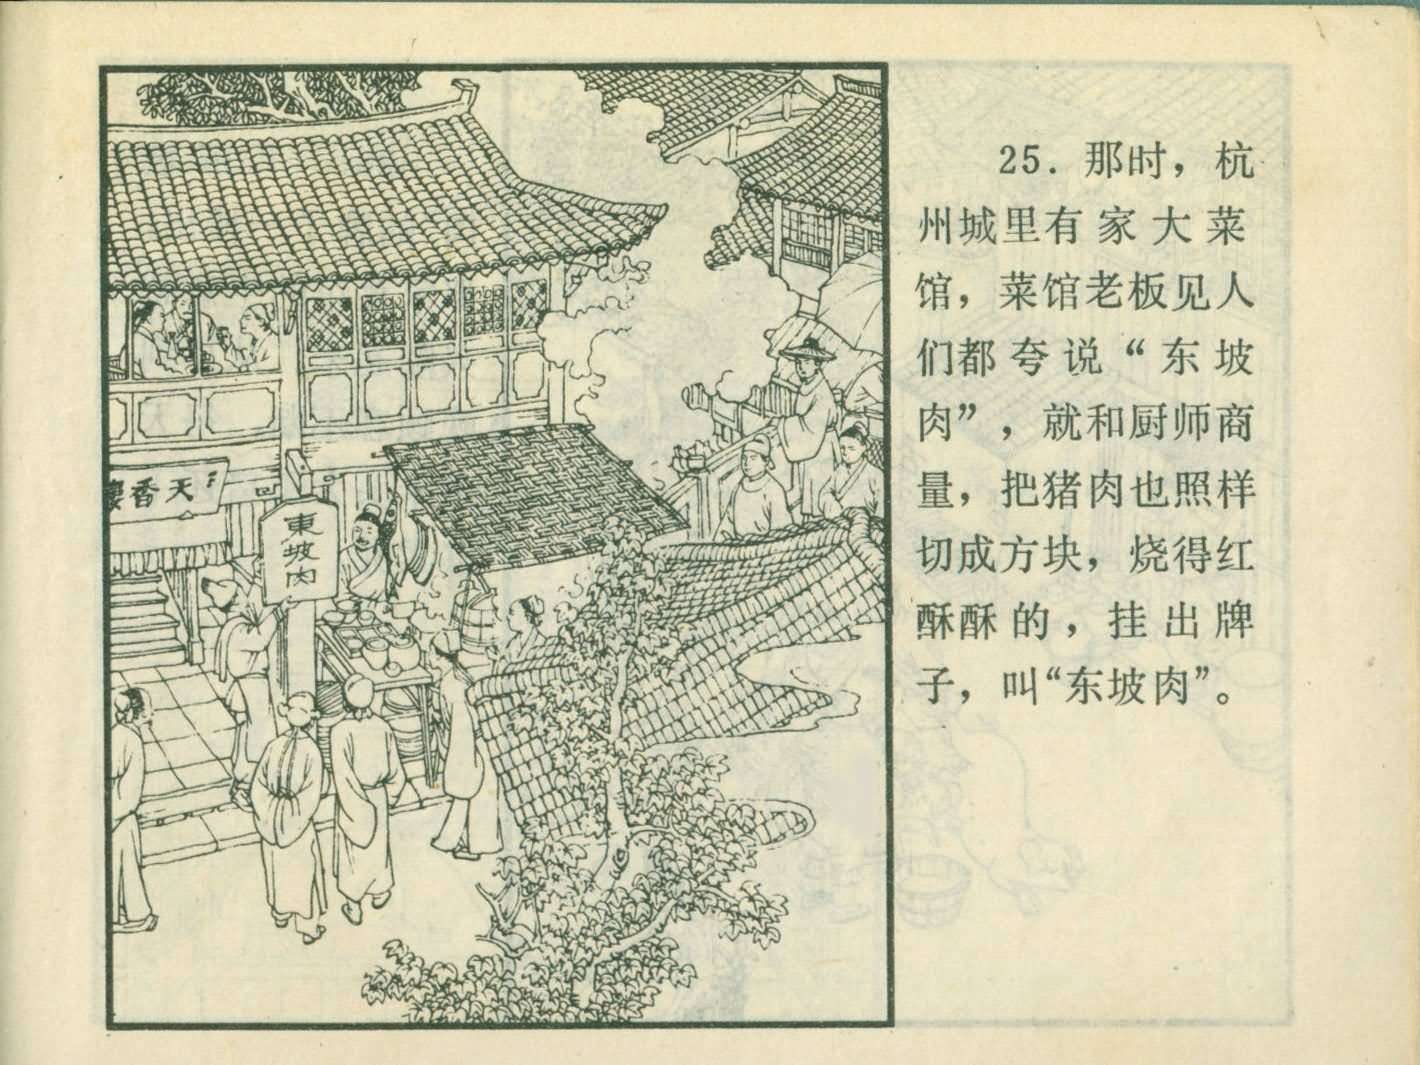 25. 那时，杭
州城里有家大菜
馆，菜馆老板见人
们都夸说“东坡
肉”，就和厨师商
量，把猪肉也照样
切成方块，烧得红
酥酥的，挂出牌
子，叫“东坡肉”。
天香樓
東坡肉